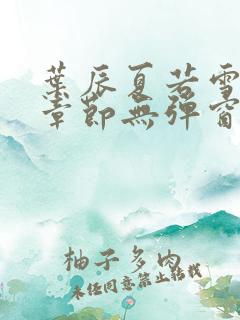 葉辰夏若雪
章節無彈窗
柚子多肉
未经同意禁止转载